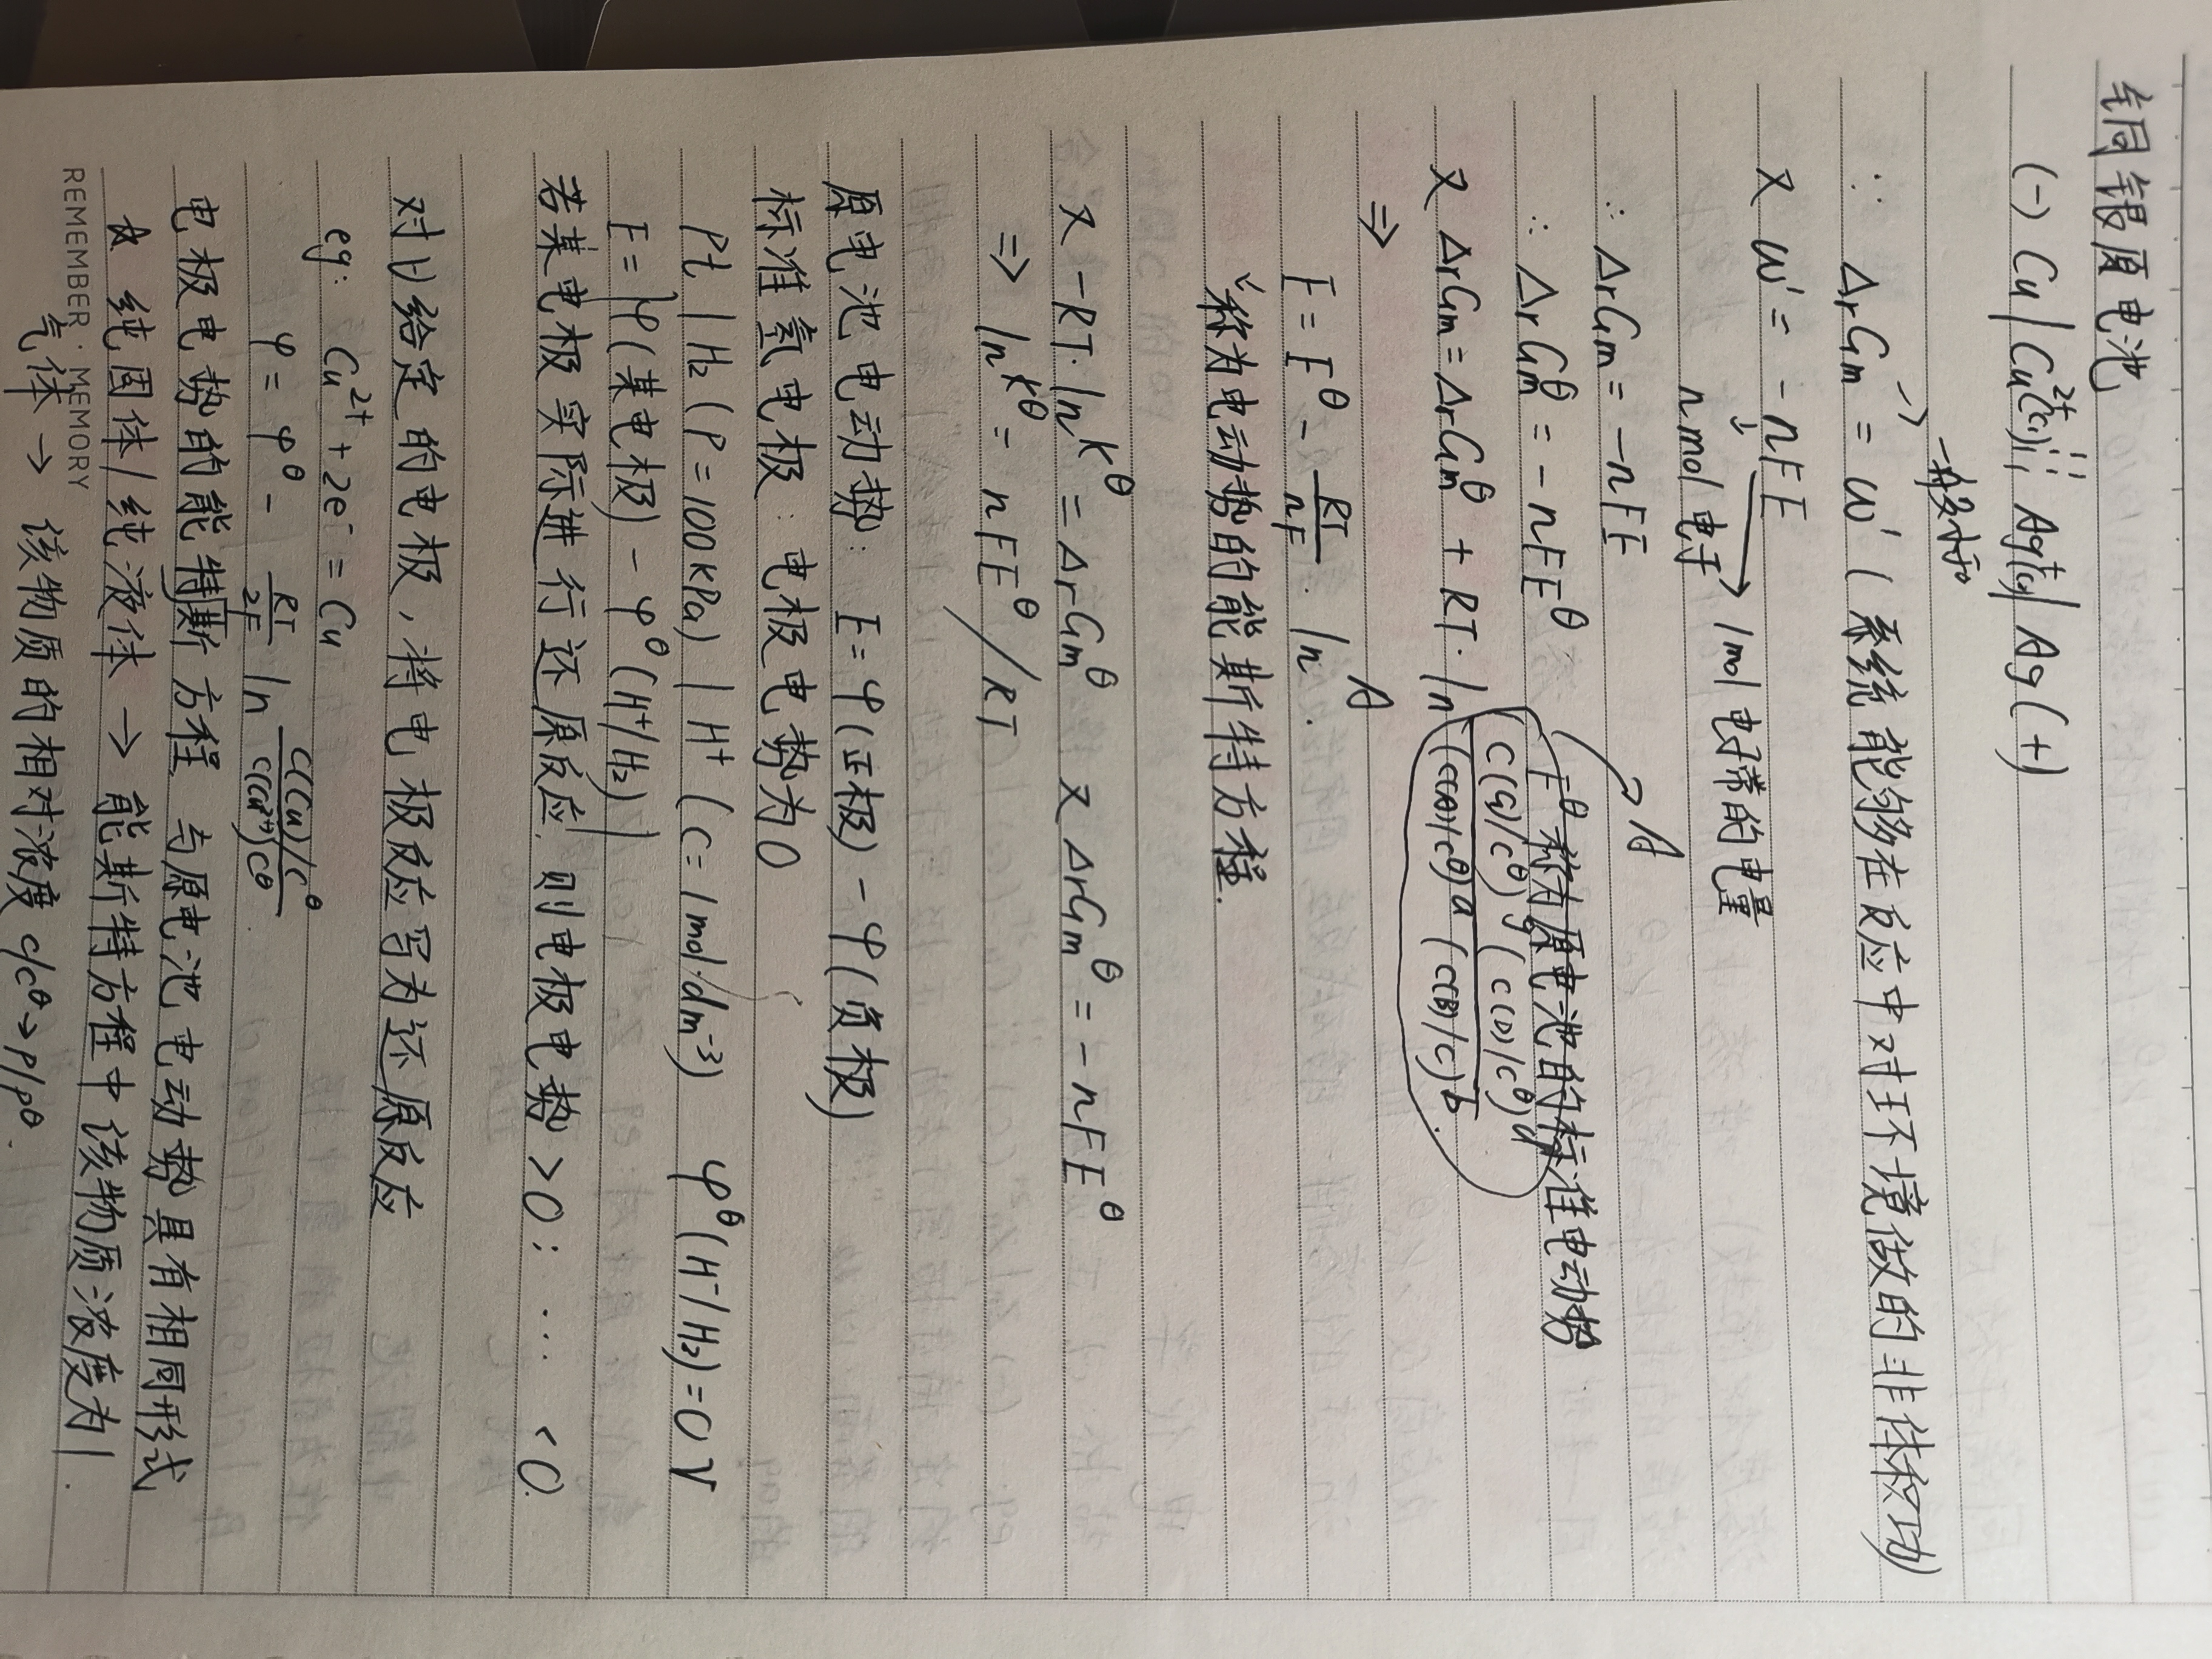 铜银原电池
(-) Cu | Cu²⁺(c₁) ¦¦ Ag⁺(c₂) | Ag (+)
∵ ΔrGm = w' (系统能够在反应中对环境做的非体积功)
又 w' = -nFE
n mol 电子 → 1mol 电子带的电量
∴ ΔrGm = -nFE
∴ ΔrGmᶿ = -nFEᶿ Eᶿ称为原电池的标准电动势
又 ΔrGm = ΔrGmᶿ + RT·ln (c(G)/cᶿ)g (c(D)/cᶿ)d / (c(A)/cᶿ)a (c(B)/c)b . → A
⇒
E = Eᶿ - RT/nF · ln A
称为电动势的能斯特方程.
又 -RT·lnKᶿ = ΔrGmᶿ 又 ΔrGmᶿ = -nFEᶿ
⇒ lnKᶿ = nFEᶿ/RT
原电池电动势: E = φ(正极) - φ(负极)
标准氢电极: 电极电势为0
Pt | H₂ (P=100kPa) | H⁺ (c=1mol/dm⁻³) φᶿ(H⁻/H₂)=0V
E = |φ(某电极) - φᶿ(H⁺/H₂)|
若某电极实际进行还原反应, 则电极电势 >0 : ... <0.
对以给定的电极, 将电极反应写为还原反应
eg: Cu²⁺ + 2e⁻ = Cu
φ = φᶿ - RT/2F ln c(Cu)/cᶿ / c(Cu²⁺)/cᶿ .
电极电势的能特斯方程 与原电池电动势具有相同形式
☆ 纯固体/纯液体 → 能斯特方程中该物质浓度为1.
气体 → 该物质的相对浓度 c/cᶿ → p/pᶿ.
REMEMBER · MEMORY